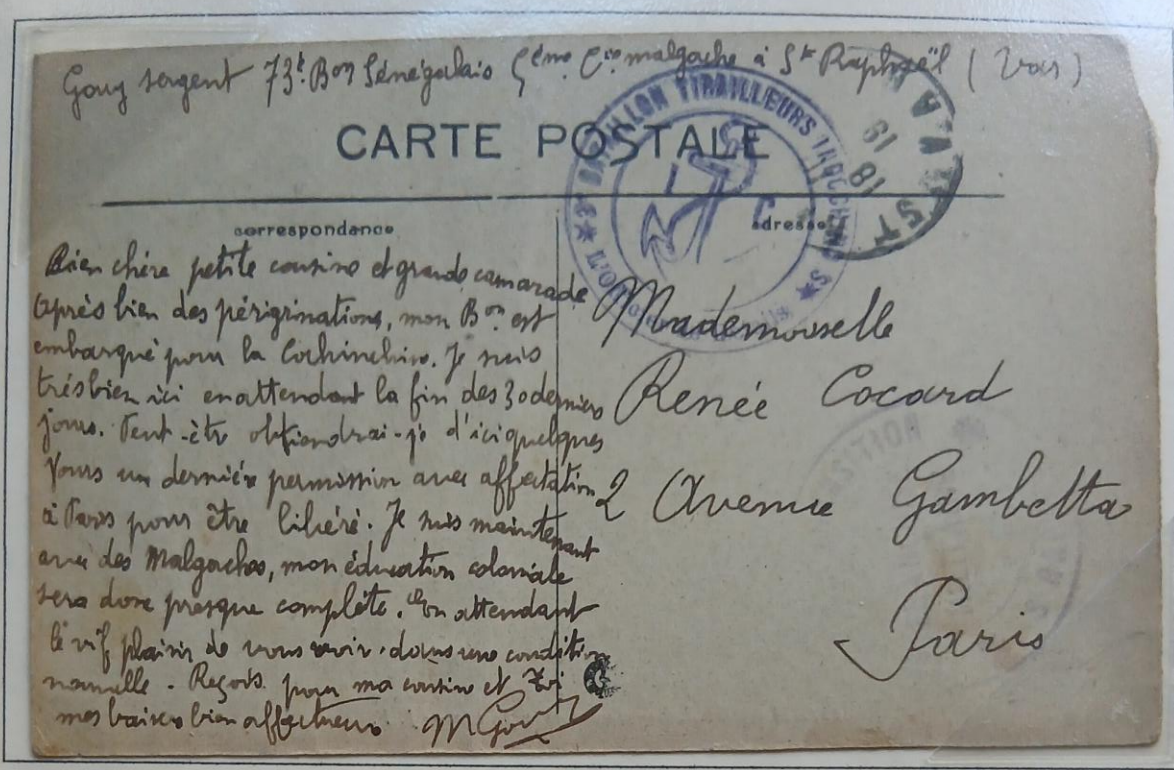 Gouy sergent 73e Bon Sénégalais 5ème Cie malgache à St Raphaël (Var)
CARTE POSTALE
correspondance
adresse
BATAILLON TIRAILLEURS
18
19
Bien chère petite cousine et grande camarade
Après bien des périgrinations, mon Bon est
embarqué pour la Cochinchine. Je suis
très bien ici en attendant la fin des 30 derniers
jours. Peut-être obtiendrai-je d'ici quelques
jours un dernière permission avec affectation
à Paris pour être libéré. Je suis maintenant
avec des Malgaches, mon éducation coloniale
sera donc presque complète. En attendant
le vif plaisir de vous voir dans une condition
normale. Reçois pour ma cousine et Toi
mes baisers bien affectueux. M Gouy
Mademoiselle
Renée Cocard
2 Avenue Gambetta
Paris